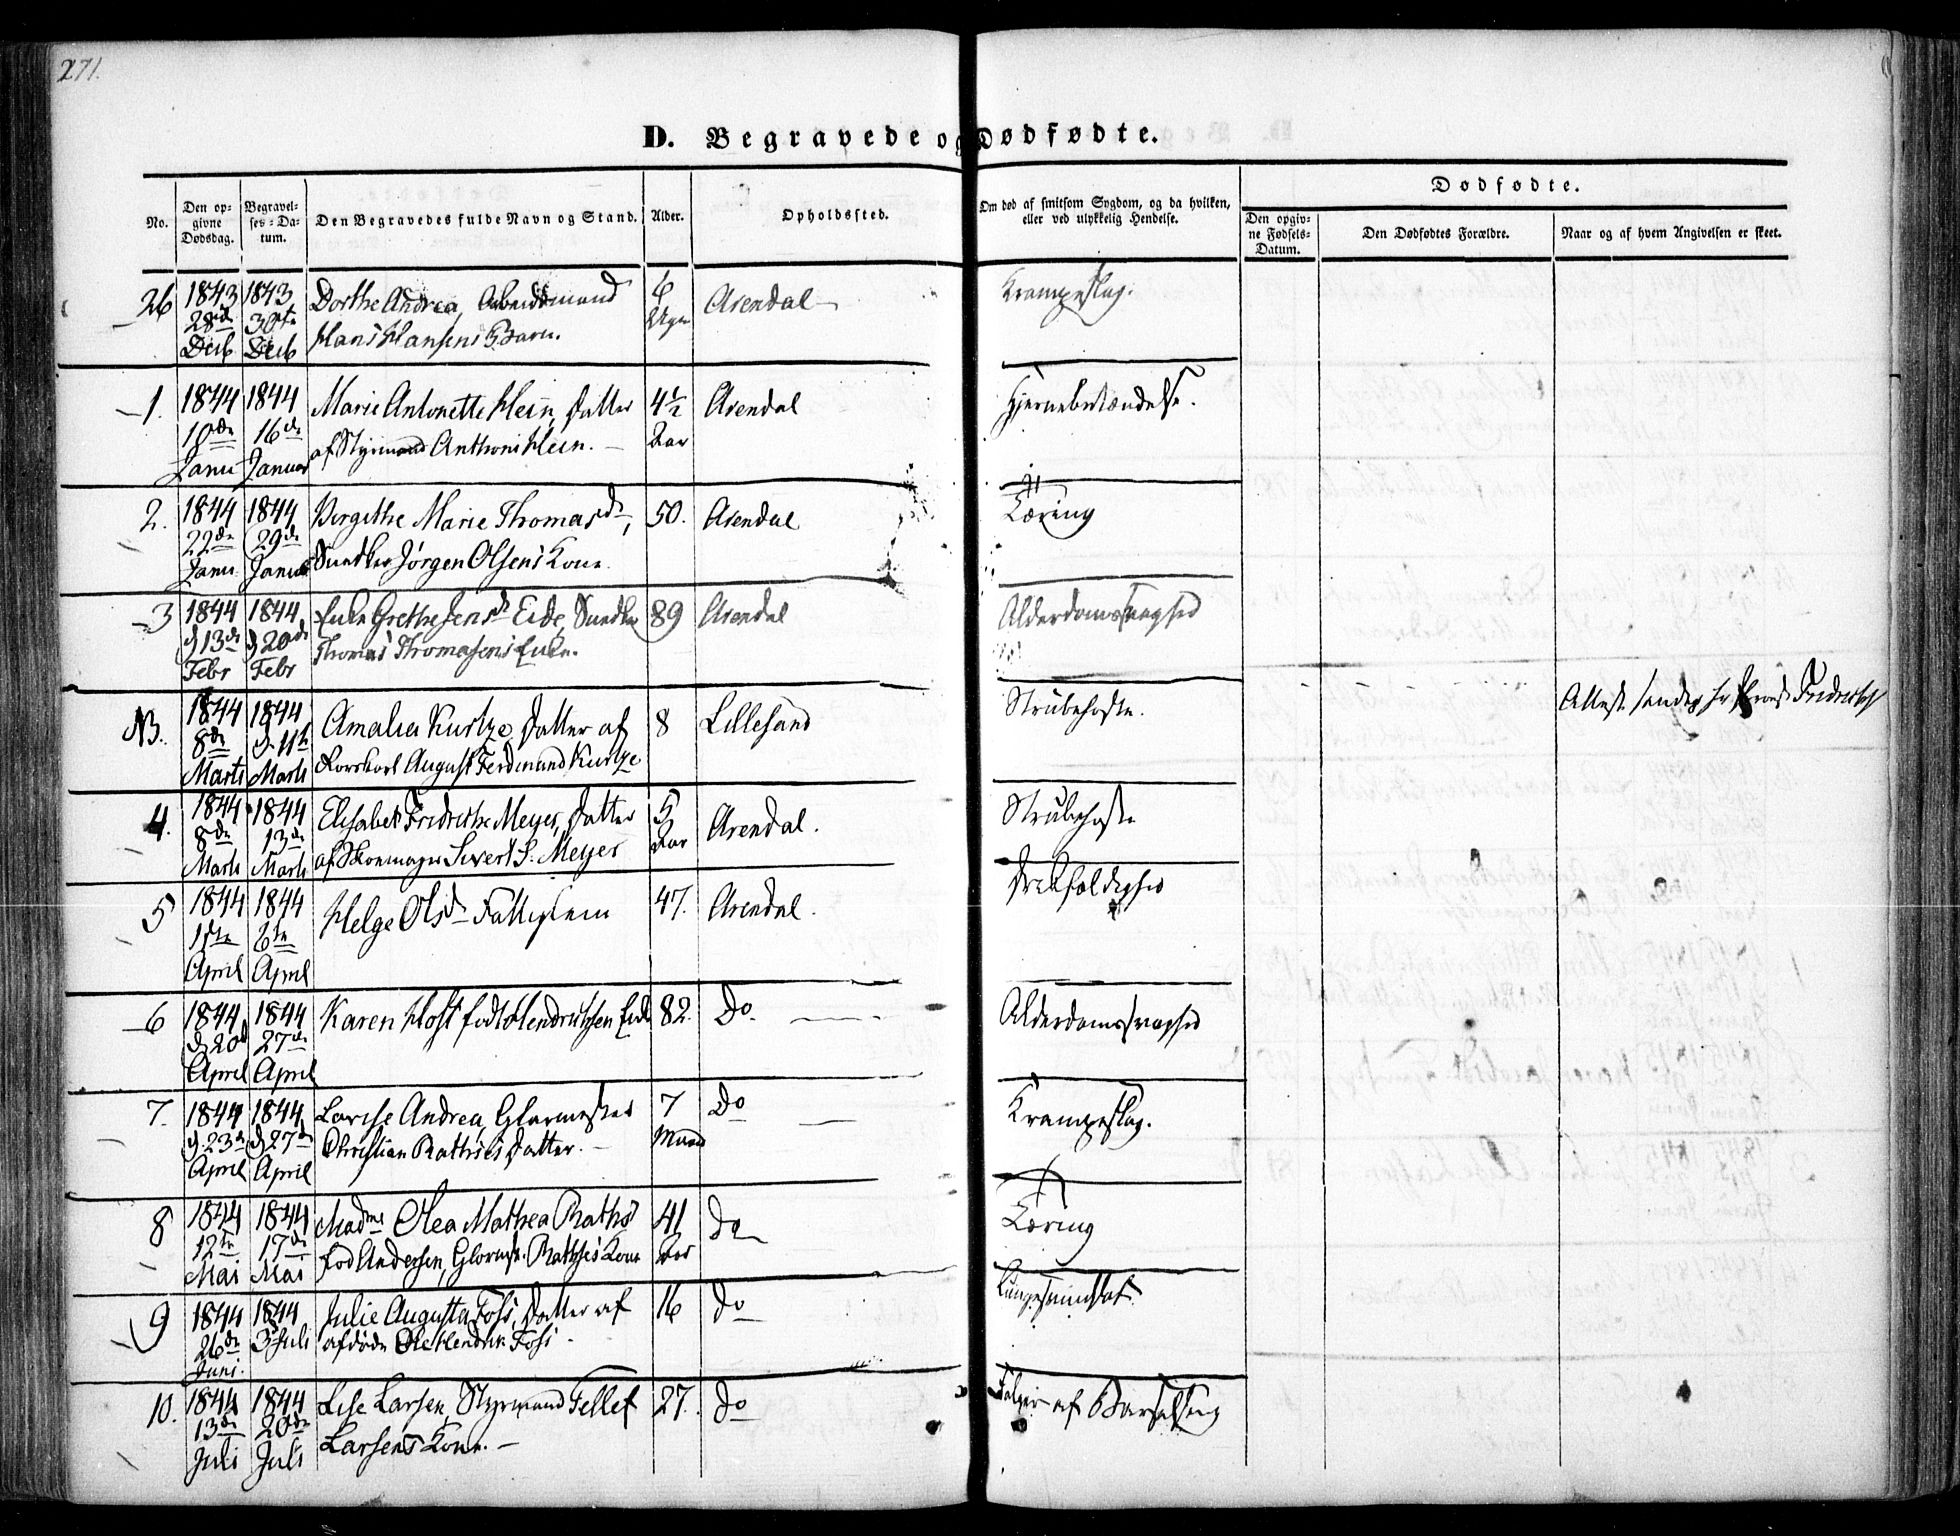 271.
D. Begravede og Dødfødte.
No.
Den opgivne Dødsdag.
Begravelses-Datum.
Den Begravedes fulde Navn og Stand.
Alder.
Opholdssted.
Om død af smitsom Sygdom, og da hvilken, eller ved ulykkelig Hendelse.
Dødfødte.
Den opgivne Fødsels-Datum.
Den Dødfødtes Forældre.
Naar og af hvem Angivelsen er skeet.
26 1843 28de Decb 1843 30te Decb Dorthe Andrea, Arbeidsmand 6 Uger Arendal Krampeslag.
Hans Hansens Barn.
1. 1844 10de Janu 1844 16de Januar Marie Antonette Klein, Datter 4½ Aar Arendal Hjernebetændelse.
af Styrmand Anthoni Klein.
2. 1844 22de Janu 1844 29de Janu Birgithe Marie Thomasd., 50. Arendal Tæring
Jørgen Olsens Kone.
3 1844 d 13de Febr 1844 d 20de Febr Enke Grethe Jensd Eide, 89 Arendal Alderdomssvaghed
Thomas Thomasens Enke.
N3. 1844 8de Marts 1844 d. 11te Marts Amalia Kurtze, Datter af 8 Lillesand Strubehoste. Attest
August Ferdinand Kurtze
4. 1844 8de Marts 1844 13de Marts Elisabet Fredrikke Meyer, Datter 5 Aar Arendal. Strubehoste
af Skomager Sivert S. Meyer
5 1844 1ste April 1844 6te April Helge Olsd. Fattiglem 47. Arendal.
6 1844 d 20d April 1844 27de April Karen Holst født Hendrichsen Enke 82. Do. Alderdomssvaghed
7. 1844 d. 23de April 1844 d 27de April Lovise Andrea, Glarmester 7 Maan Do Krampeslag.
Christian Raths's Datter.
8 1844 12te Mai 1844 17de Mai Madme Olea Mathea Raths 41 Aar do Tæring
fød Andersen, Glarmstr. Raths's Kone
9 1844 26de Juni 1844 3 Juli Julie Augusta Foss, Datter af 16 do
afdøde Ole Hendrik Foss.
10. 1844 13de Juli 1844 20de Juli Lise Larsen, Styrmand Tellef 27. do Følger af Barselseng
Larsens Kone.